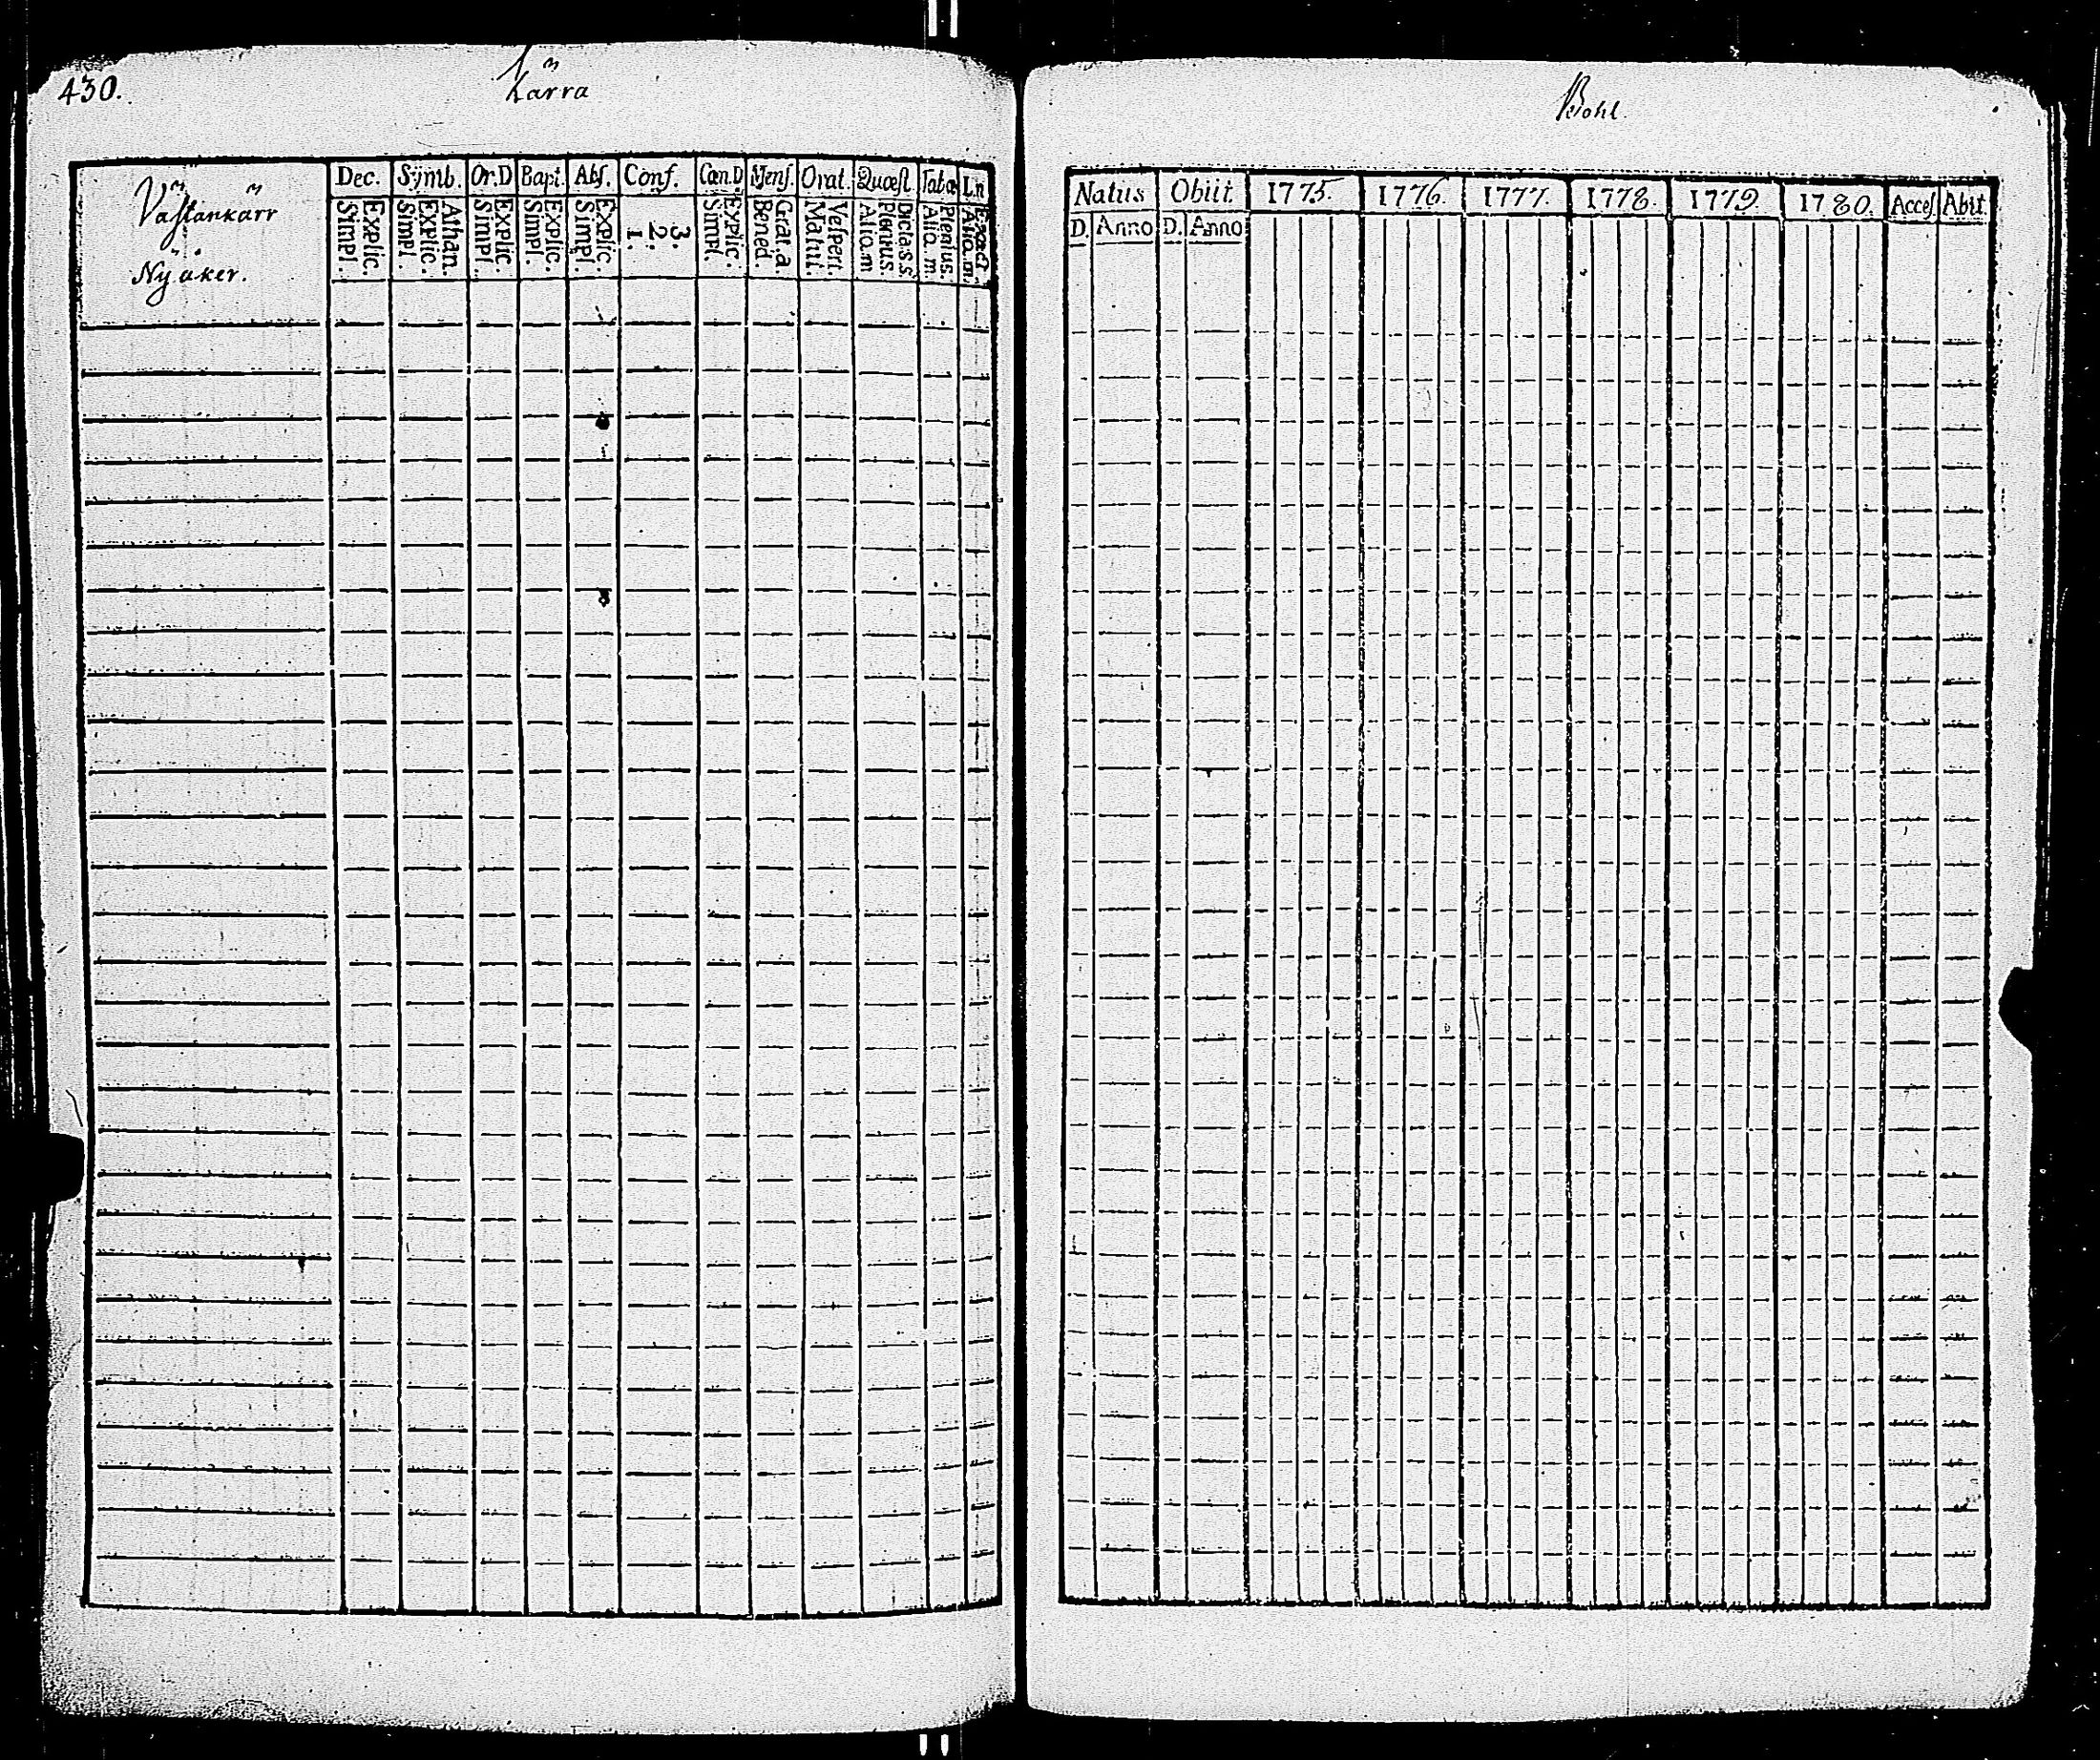 430.
Kärra
Västankärr
Nyåker.
Dec. Symb. Or.D Bapt. Abs. Conf. Can.D. Mens. Orat. Quæst. Taba Ln
Explic. Simpl.
Athan. Explic. Simpl.
Explic. Simpl.
Explic. Simpl.
Explic. Simpl.
3. 2. 1.
Explic. Simpl.
Grat.a. Bened.
Vespert. Matut.
Dicta.s.s. Plenius. Aliq.m
Plenius. Aliq.m
Exact Aliq.m.
Bohl.
Natus Obiit. 1775. 1776. 1777. 1778. 1779. 1780. Acces. Abit.
D. Anno D. Anno